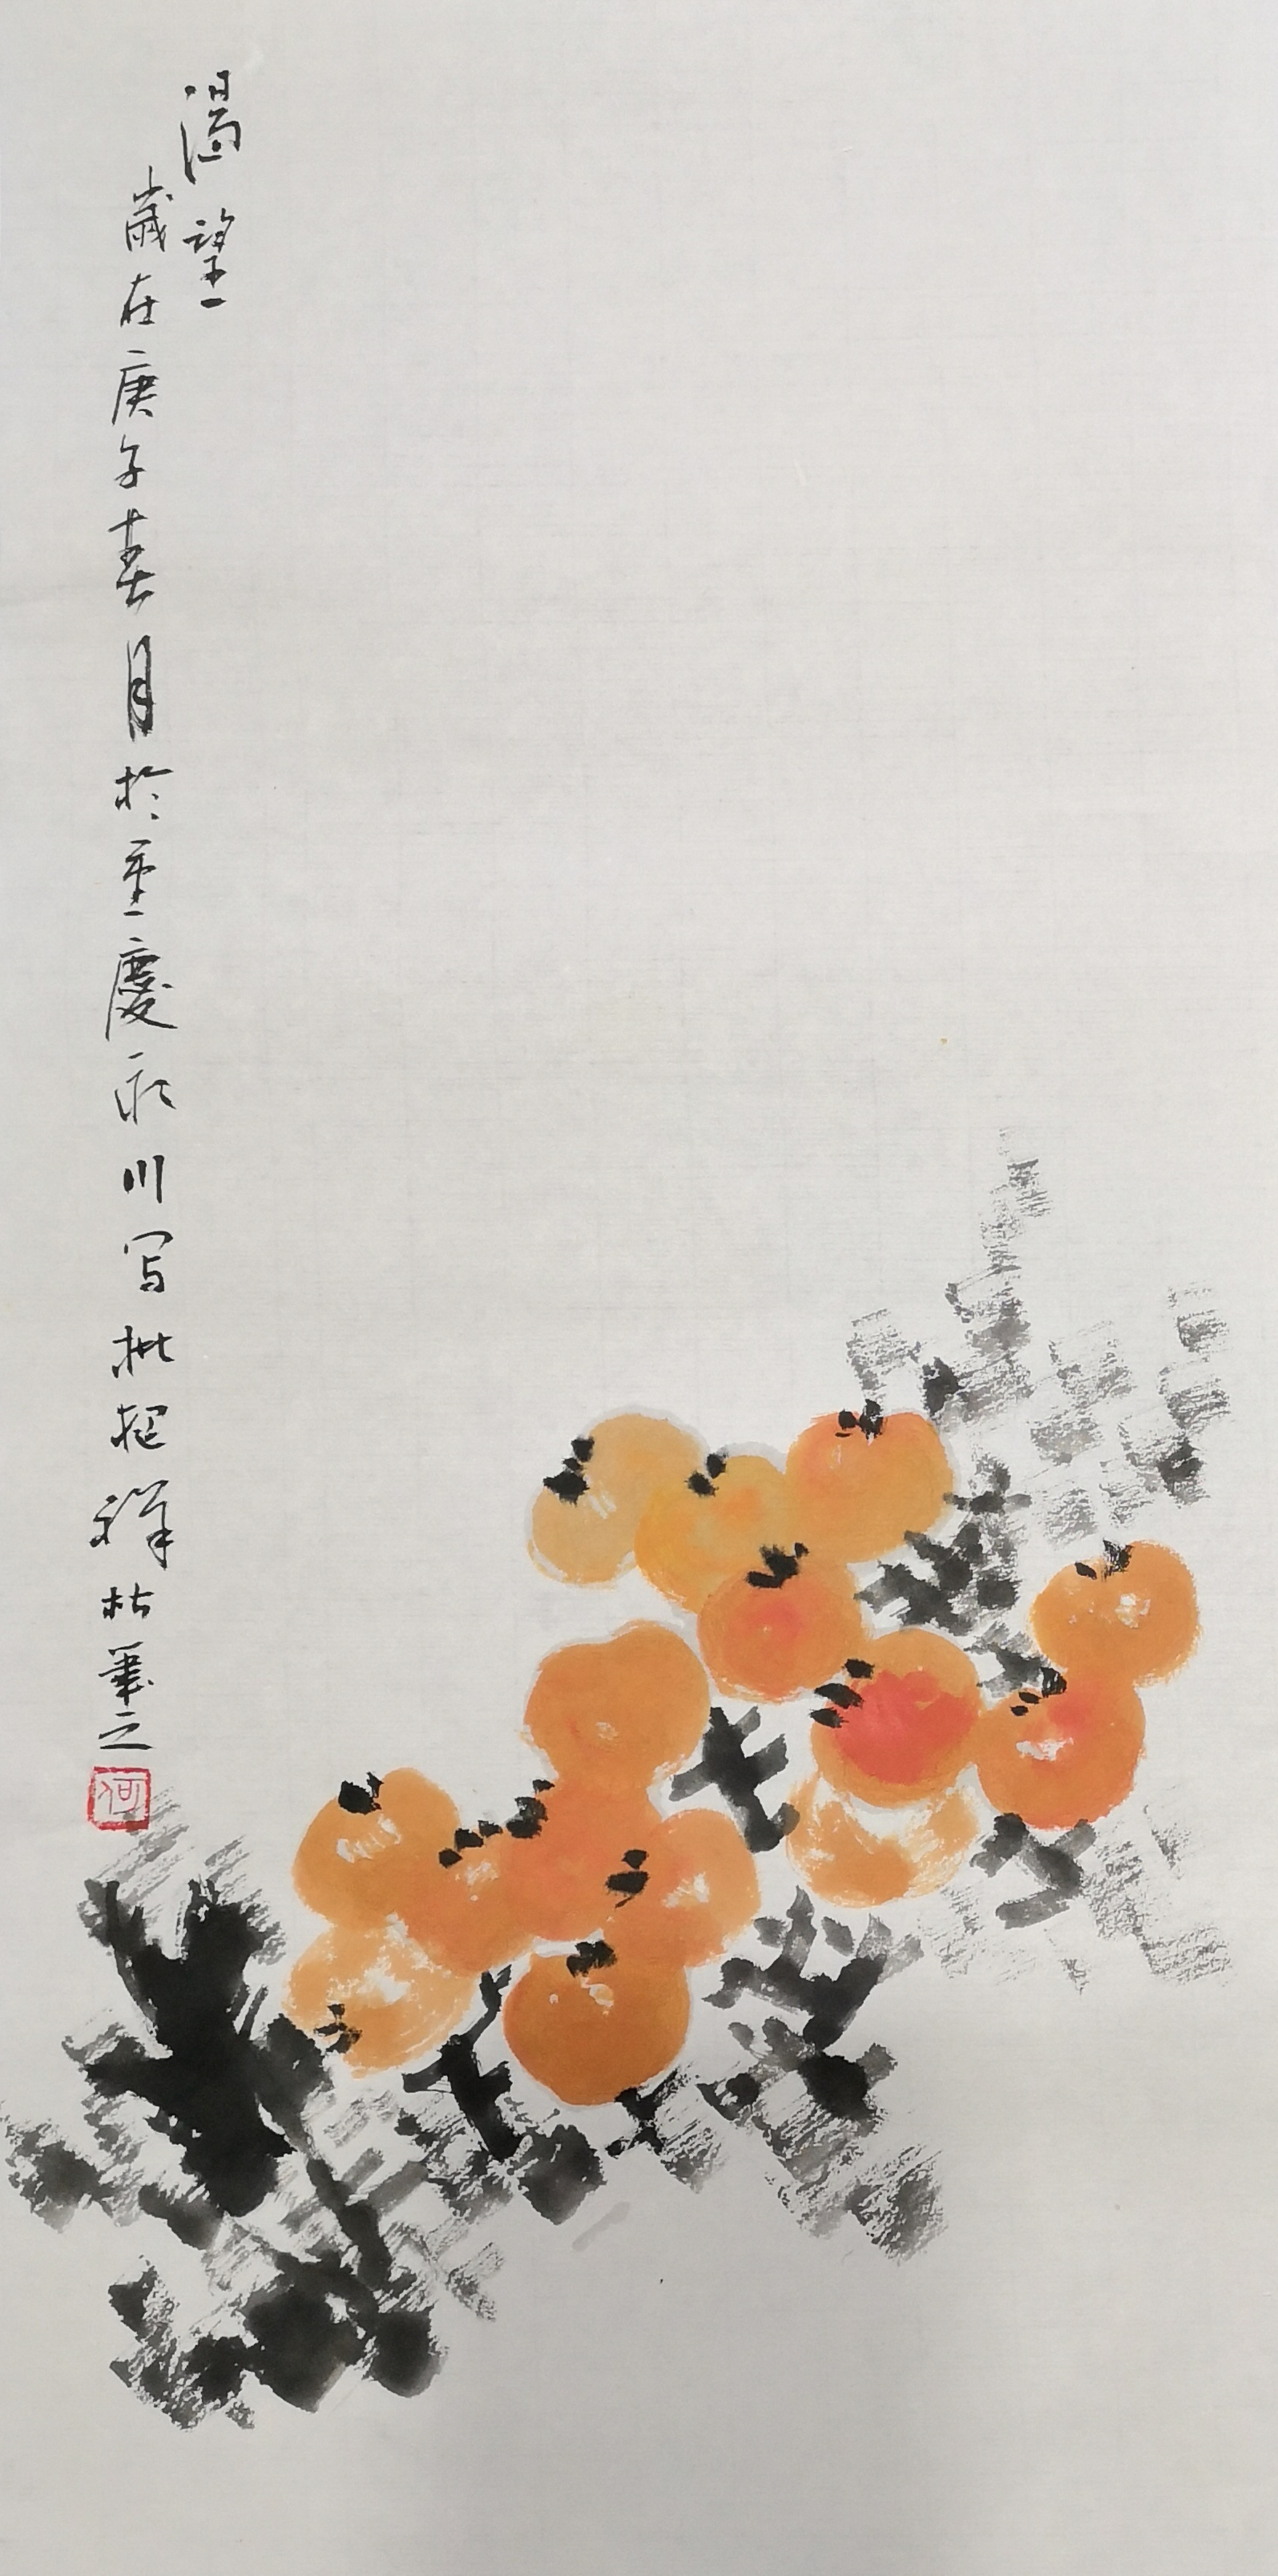 渴望
歲在庚子春月於重慶永川写枇杷祥林筆之
何